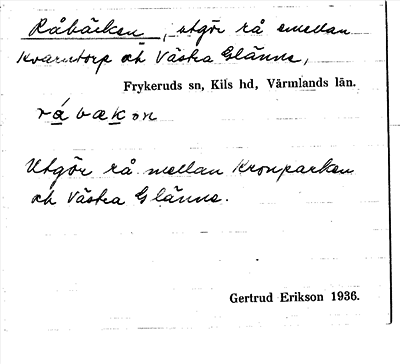 Råbäcken, utgör rå emellan
Kvarntorp och Västra Glänne,
Frykeruds sn, Kils hd, Värmlands län.
Utgör rå mellan Kronparken
och Västra Glänne.
Gertrud Erikson 1936.